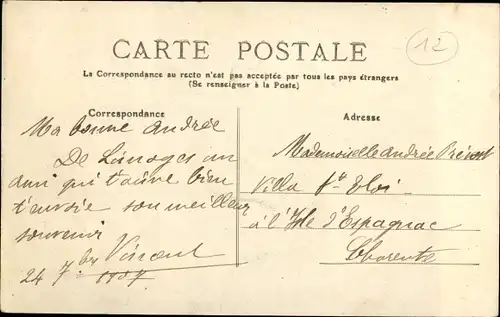 12
CARTE POSTALE
La Correspondance au recto n'est pas acceptée par tous les pays étrangers
(Se renseigner à la Poste)
Correspondance
Ma bonne Andrée
De Limoges un
ami qui t'aime bien
t'envoie son meilleur
souvenir
Vincent
24 7bre 1907
Adresse
Mademoiselle Andrée Prévost
Villa St Eloi
à l'Isle d'Espagnac
Charente